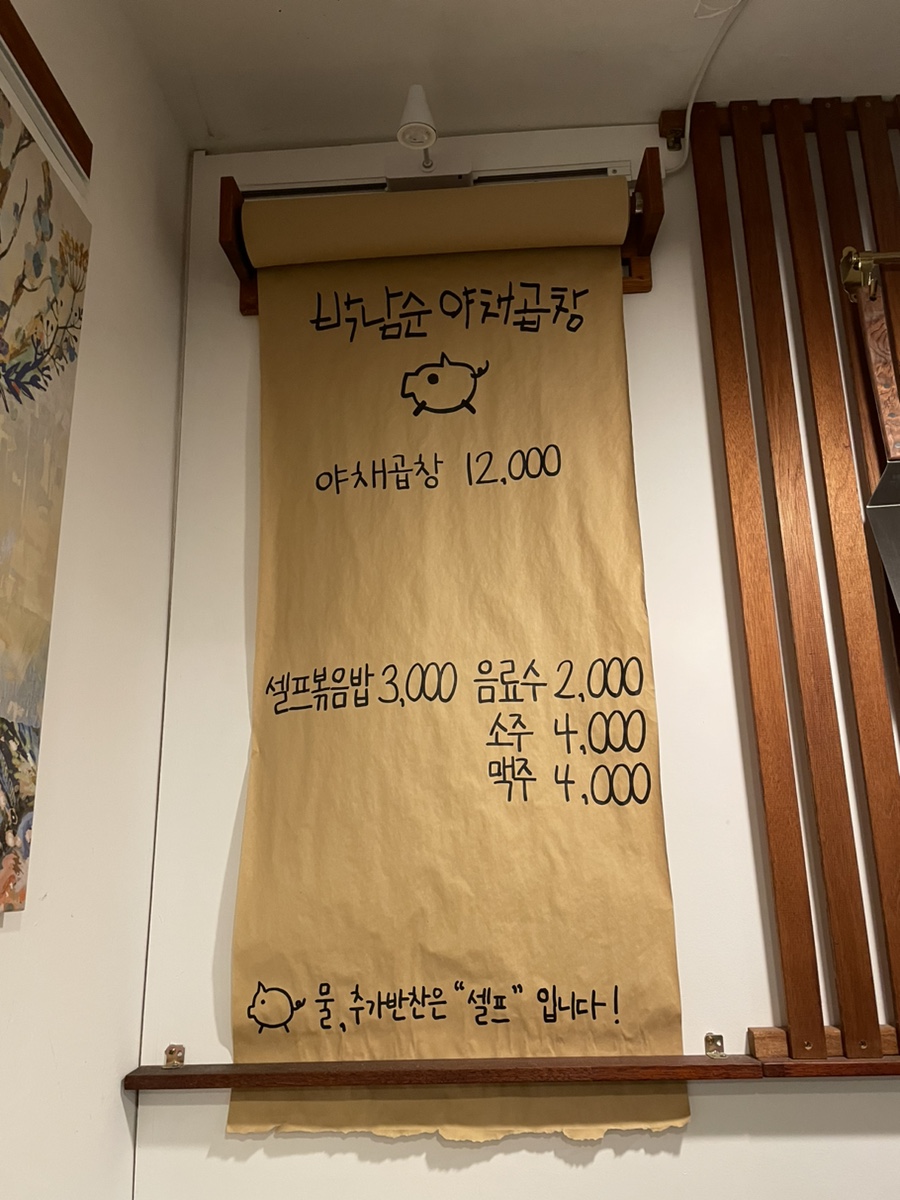 박남순 야채곱창
야채곱창 12,000
셀프볶음밥 3,000 음료수 2,000
소주 4,000
맥주 4,000
물, 추가반찬은 “셀프” 입니다!